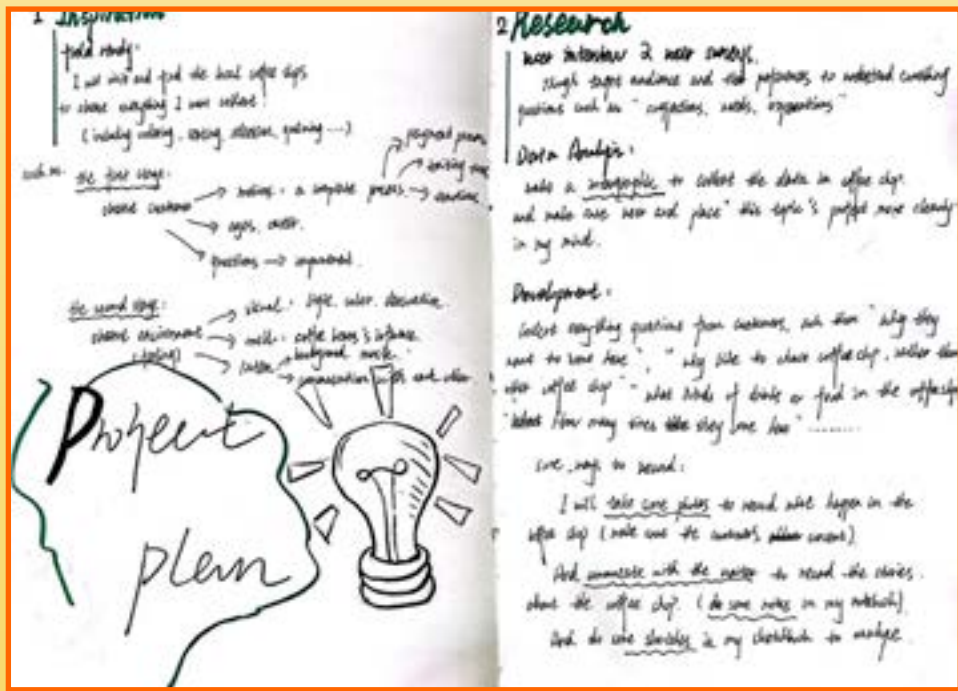 1 Inspiration
field study:
I will visit and find the local coffee shops
to observe everything I were collect!
(including ordering, serving, ...)
such as: the first stage:
observe customer → actions: a complete process → payment process
→ waiting time
→ emotions
→ ages, career.
→ questions → unprocessed.
the second stage:
observe environment → visual: style, color, decoration.
→ smell: coffee beans's
→ listen → background music.
→ conversation with each other
Project
plan
2 Research
user interview & user surveys.
target audience and their preferences to understand
questions such as "suggestions, needs, expectations"
Data Analysis:
make a infographic to collect the data in coffee shop.
and make sure user and place" this topic's project more clearly
in my mind.
Development:
Collect everything questions from customers, ask them "why they
want to come here", "why like to choose coffee shop, rather than
other coffee shop" "what kinds of drinks or food in the coffeeshop
"How many times they come here" ........
some ways to record:
I will take some photos to record what happen in the
coffee shop (make sure the customers consent)
And communicate with the to record the stories.
about the coffee shop. (do some notes in my notebook)
And do some sketches in my sketchbook to analyze.